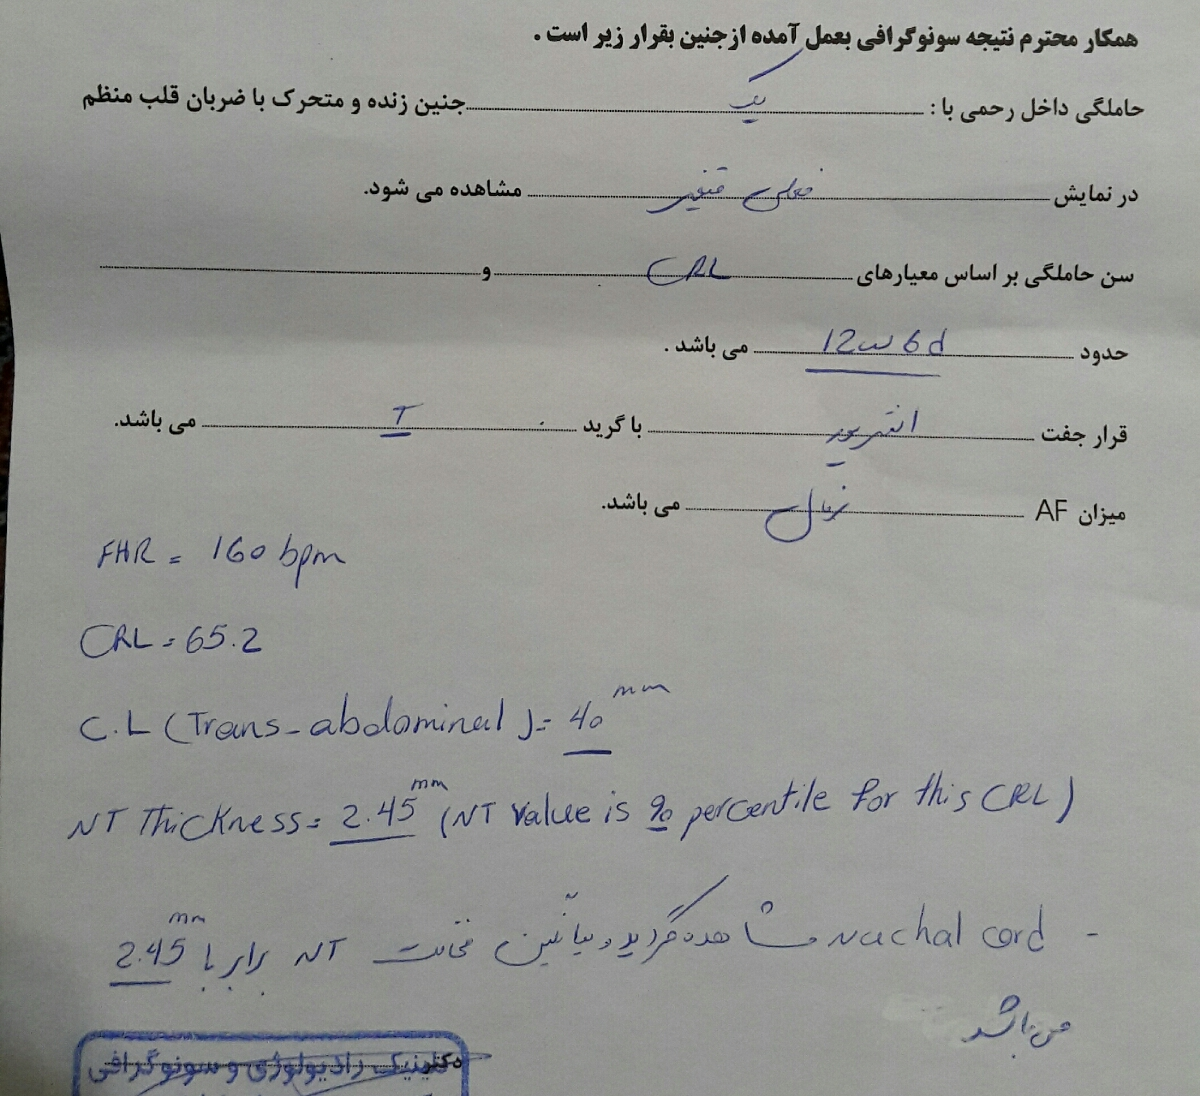 همکار محترم نتیجه سونوگرافی بعمل آمده از جنین بقرار زیر است .
حاملگی داخل رحمی با : یک جنین زنده و متحرک با ضربان قلب منظم
در نمایش فعلی متغیر مشاهده می شود.
سن حاملگی بر اساس معیارهای CRL و
حدود 12w 6d می باشد .
قرار جفت با گرید I می باشد.
میزان AF نرمال می باشد.
FHR = 160 bpm
CRL = 65.2
C.L (Trans-abdominal) = 40 mm
NT Thickness = 2.45 mm (NT value is percentile for this CRL)
- nuchal cord مشاهده گردید و میانگین ضخامت NT برابر با 2.45 mm
می باشد
کلینیک رادیولوژی و سونوگرافی
دکتر